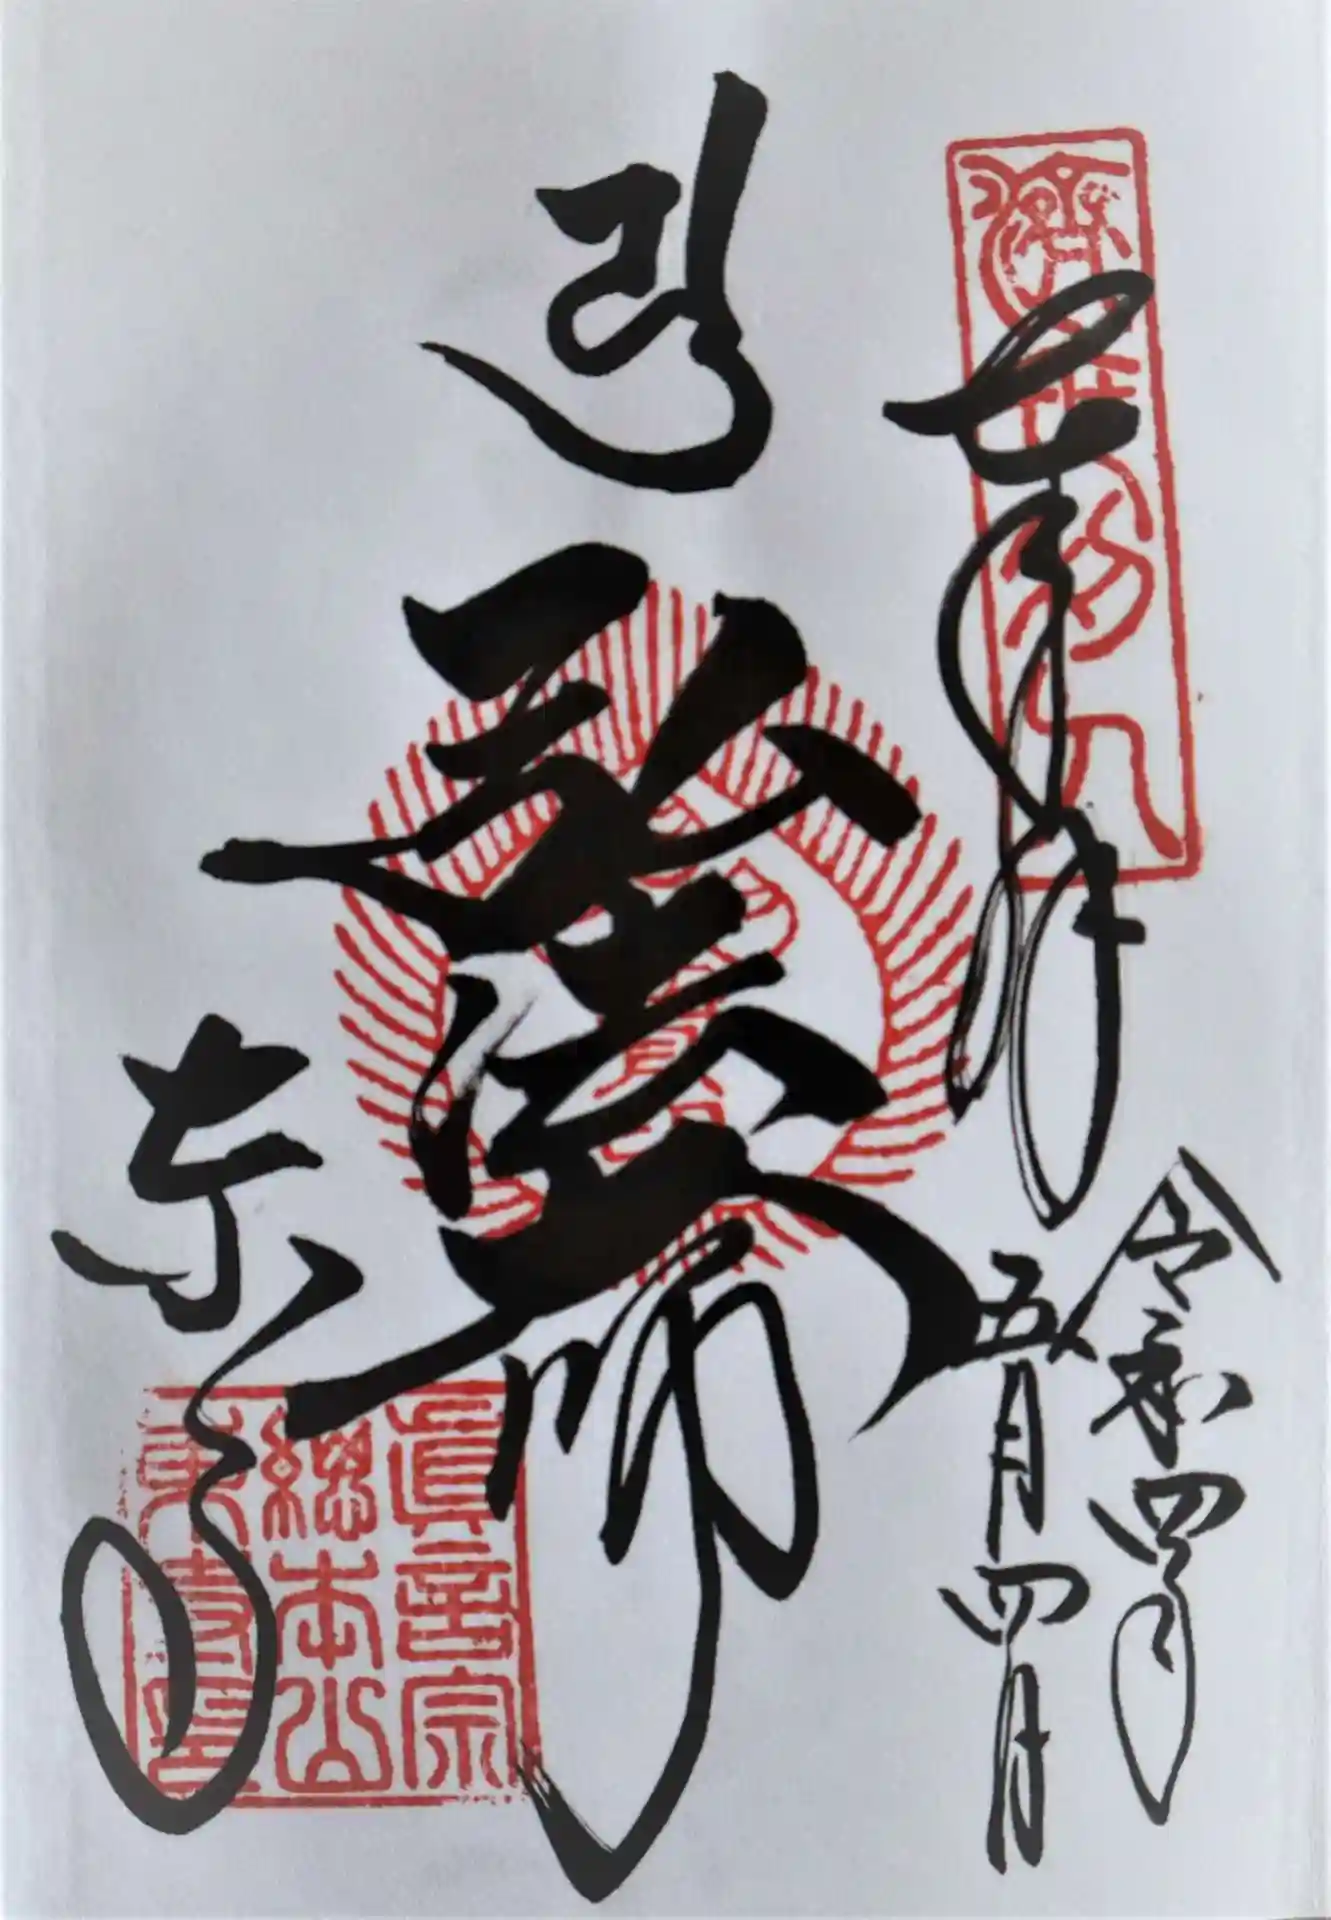 奉拝
令和四年
五月四日
弘法大師
東寺
真言宗
総本山
東寺印